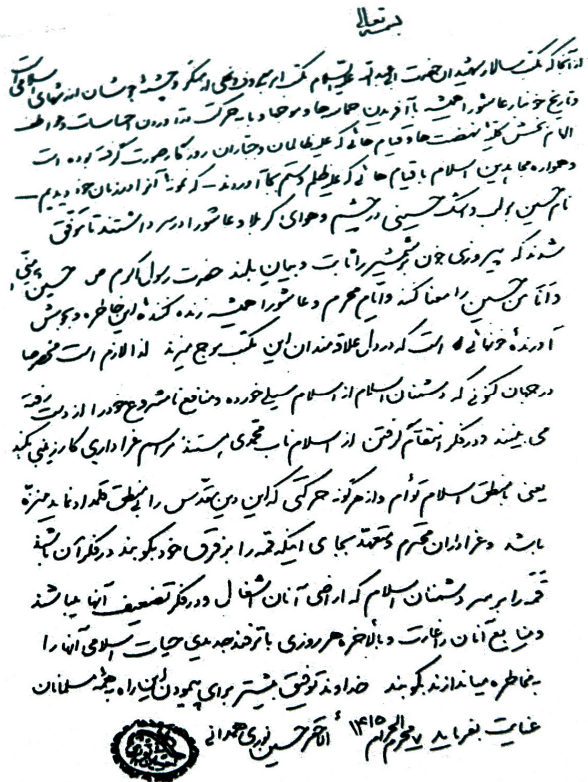 بسمه تعالی
از آنجا که مکتب سالار شهیدان حضرت ابی عبدالله علیه السلام مکتب
و تاریخ خونبار عاشورا همیشه با آفریدن حماسه‌ها و موجها و با به حرکت در آوردن احساسات و عواطف
الهام بخش کلیه نهضت‌ها و قیام‌هائی که علیه ظالمان و جباران روزگار صورت گرفته بوده است
و همواره مجاهدین اسلام با قیام‌هائی که علیه ظلم و ستم بپا آوردند ـ که نمونه آنرا در زمان خود دیدیم ـ
نام حسین بر لب و اشک حسینی در چشم و هوای کربلا و عاشورا در سر داشتند تا موفق
شدند که پیروزی خون بر شمشیر را اثبات و بیان بلند حضرت رسول اکرم ص حسین منی
و انا من حسین را معنا کنند و ایام محرم و عاشورا همیشه زنده کننده این خاطره و بجوش
آورنده خونهائی است که در دل علاقمندان این مکتب موج میزند لذا لازم است مخصوصا
در جهان کنونی که دشنان اسلام از اسلام سیلی خورده و منافع نامشروع خود را از دست رفته
می بینند و در فکر انتقام گرفتن از اسلام ناب محمدی هستند مراسم عزاداری کار زینبی بکند
یعنی با منطق اسلام توأم و از هرگونه حرکتی که این دین مقدس را بی منطق قلمداد نماید منزه
باشد و عزاداران محترم و متعهد بجای اینکه قمه را بر فرق خود بکوبند در فکر آن باشند
قمه را بر سر دشمنان اسلام که اراضی آنان اشغال و در فکر تضعیف آنها میباشند
و منابع آنان را غارت و بالاخره هر روزی با ترفند جدیدی حیات اسلامی آنها را
به مخاطره میاندازند بکوبند خداوند توفیق بیشتر برای پیمودن این راه به همه مسلمانان
عنایت بفرماید ۷ محرم الحرام ۱۴۱۵ الاحقر حسین نوری همدانی